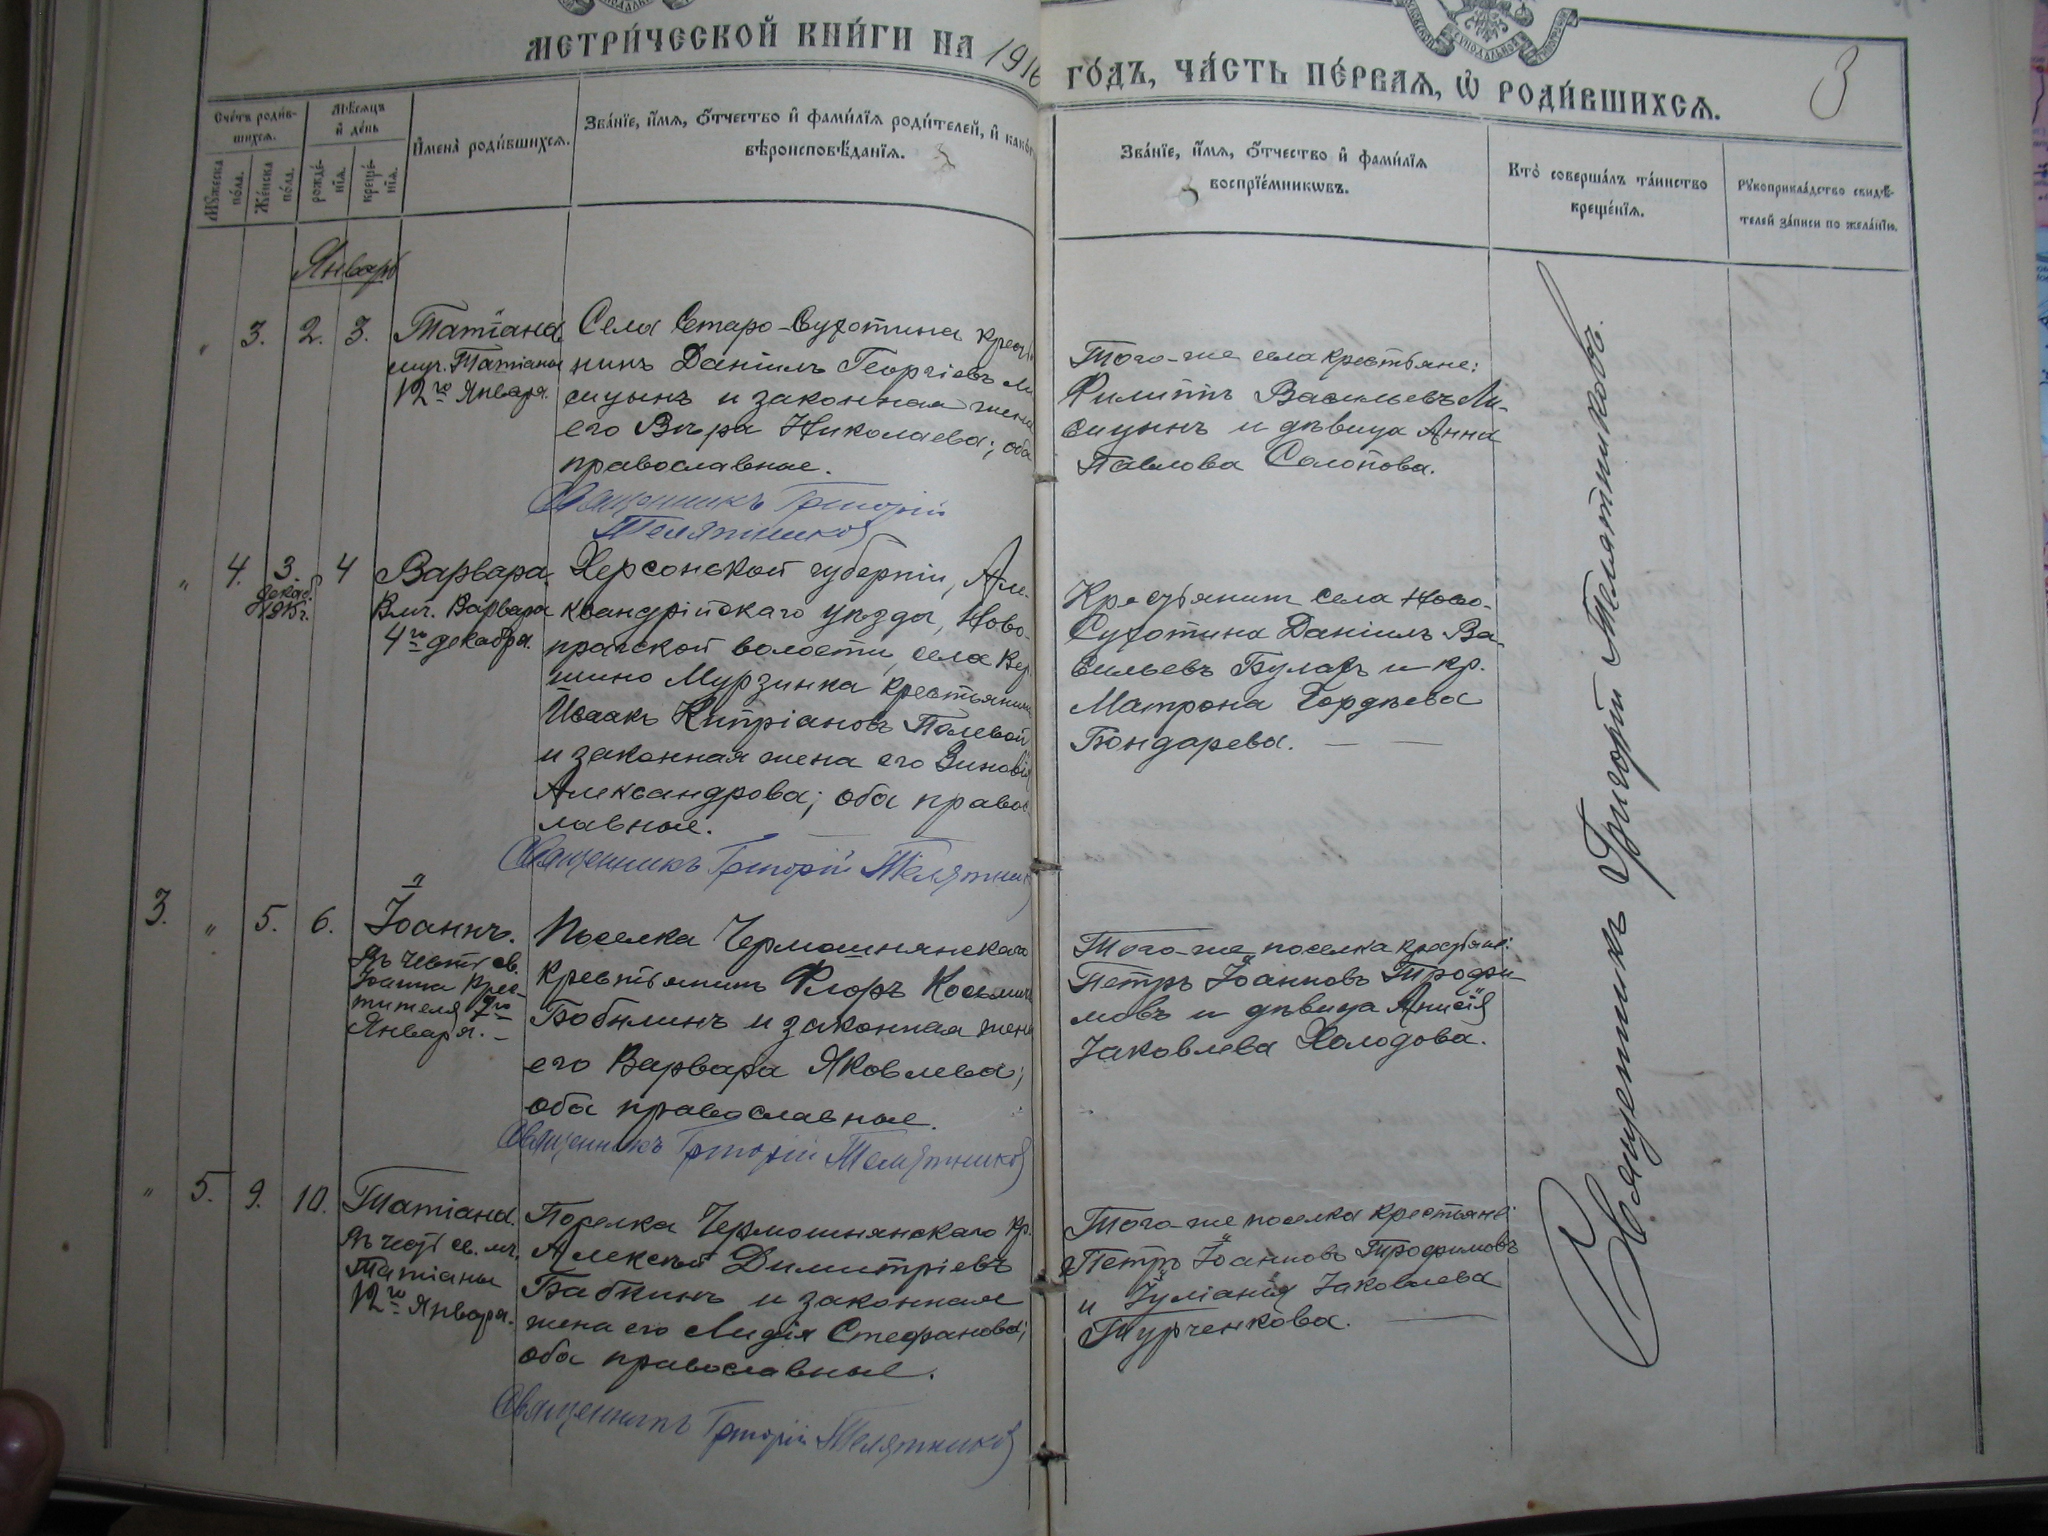 МЕТРИ́ЧЕСКОЙ КНИ́ГИ НА 1916
ГО́ДЪ, ЧА́СТЬ ПЕ́РВАЯ, Ѿ РОДИ́ВШИХСЯ.
3
Сче́тъ роди́в-
шихся.
Мѣ́сяцъ
и҆ де́нь
И҆мена̀ роди́вшихся.
Зва́нїе, и҆́мя, ѻ҆́тчество и҆ фами́лїя роди́телей, и҆ како́г
вѣроисповѣ́данїя.
Зва́нїе, и҆́мя, ѻ҆́тчество и҆ фами́лїя
воспрїе́мникѡвъ.
Кто̀ соверша́лъ та́инство
креще́нїя.
Рꙋкоприкла́дство свидѣ́-
телей за́писи по жела́нїю.
Мꙋ́жеска
по́ла.
Же́нска
по́ла.
рожде́-
нїя.
креще́-
нїя.
Январь
" 3. 2. 3.
Татіана
муч. Татіаны
12го Января.
Села Старо-Сухотина крестья
нинъ Даніилъ Георгіевъ Ли
сицынъ и законная жена
его Вѣра Николаева; оба
православные.
Священникъ Григорій
Телятников
Того-же села крестьяне:
Филиппъ Васильевъ Ли-
сицынъ и дѣвица Анна
Павлова Солопова.
" 4. 3. 4
декаб.
1915г.
Варвара
Влч. Варвара
4го декабря.
Херсонской губерніи, Але
ксандрійскаго уѣзда, Ново-
прагской волости, села Вер
шино Мурзинка крестьянинъ
Исаакъ Кипріановъ Полевой
и законная жена его Зиновія
Александрова; оба правос
лавные.
Священникъ Григорій Телятник
Крестьянинъ села Ново-
Сухотина Даніилъ Ва
сильевъ Буларъ и кр.
Матрона Гордѣева
Бондарева. — —
3. " 5. 6.
Іоаннъ.
Въ честь св.
Іоанна Крес-
тителя 7го
Января. —
Поселка Чермошнянскаго
крестьянинъ Флоръ Косьминъ
Бобылинъ и законная жена
его Варвара Яковлева;
оба православные.
Священникъ Григорій Телятников
Того-же поселка крестьяне:
Петръ Іоанновъ Трофи
мовъ и дѣвица Анисія
Іаковлева Холодова.
" 5. 9. 10.
Татіана.
Въ честь св. мч.
Татіаны
12го Января.
Поселка Чермошнянскаго кр.
Алексѣй Димитріевъ
Бабкинъ и законная
жена его Лидія Стефанова;
оба православные.
Священникъ Григорій Телятников
Того-же поселка крестьяне:
Петръ Іоанновъ Трофимовъ
и Іуліанія Іаковлева
Турченкова. —
Священникъ Григорій Телятниковъ.